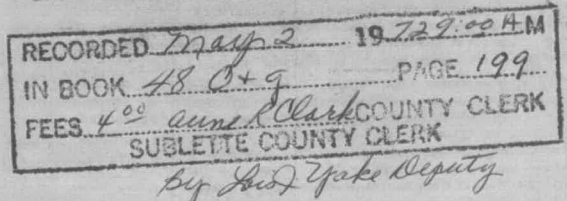 RECORDED May 2 1972 9:00 A M
IN BOOK 48 O+g PAGE 199
FEES 4⁰⁰ Anne R Clark COUNTY CLERK
SUBLETTE COUNTY CLERK
By Lois J Yake Deputy